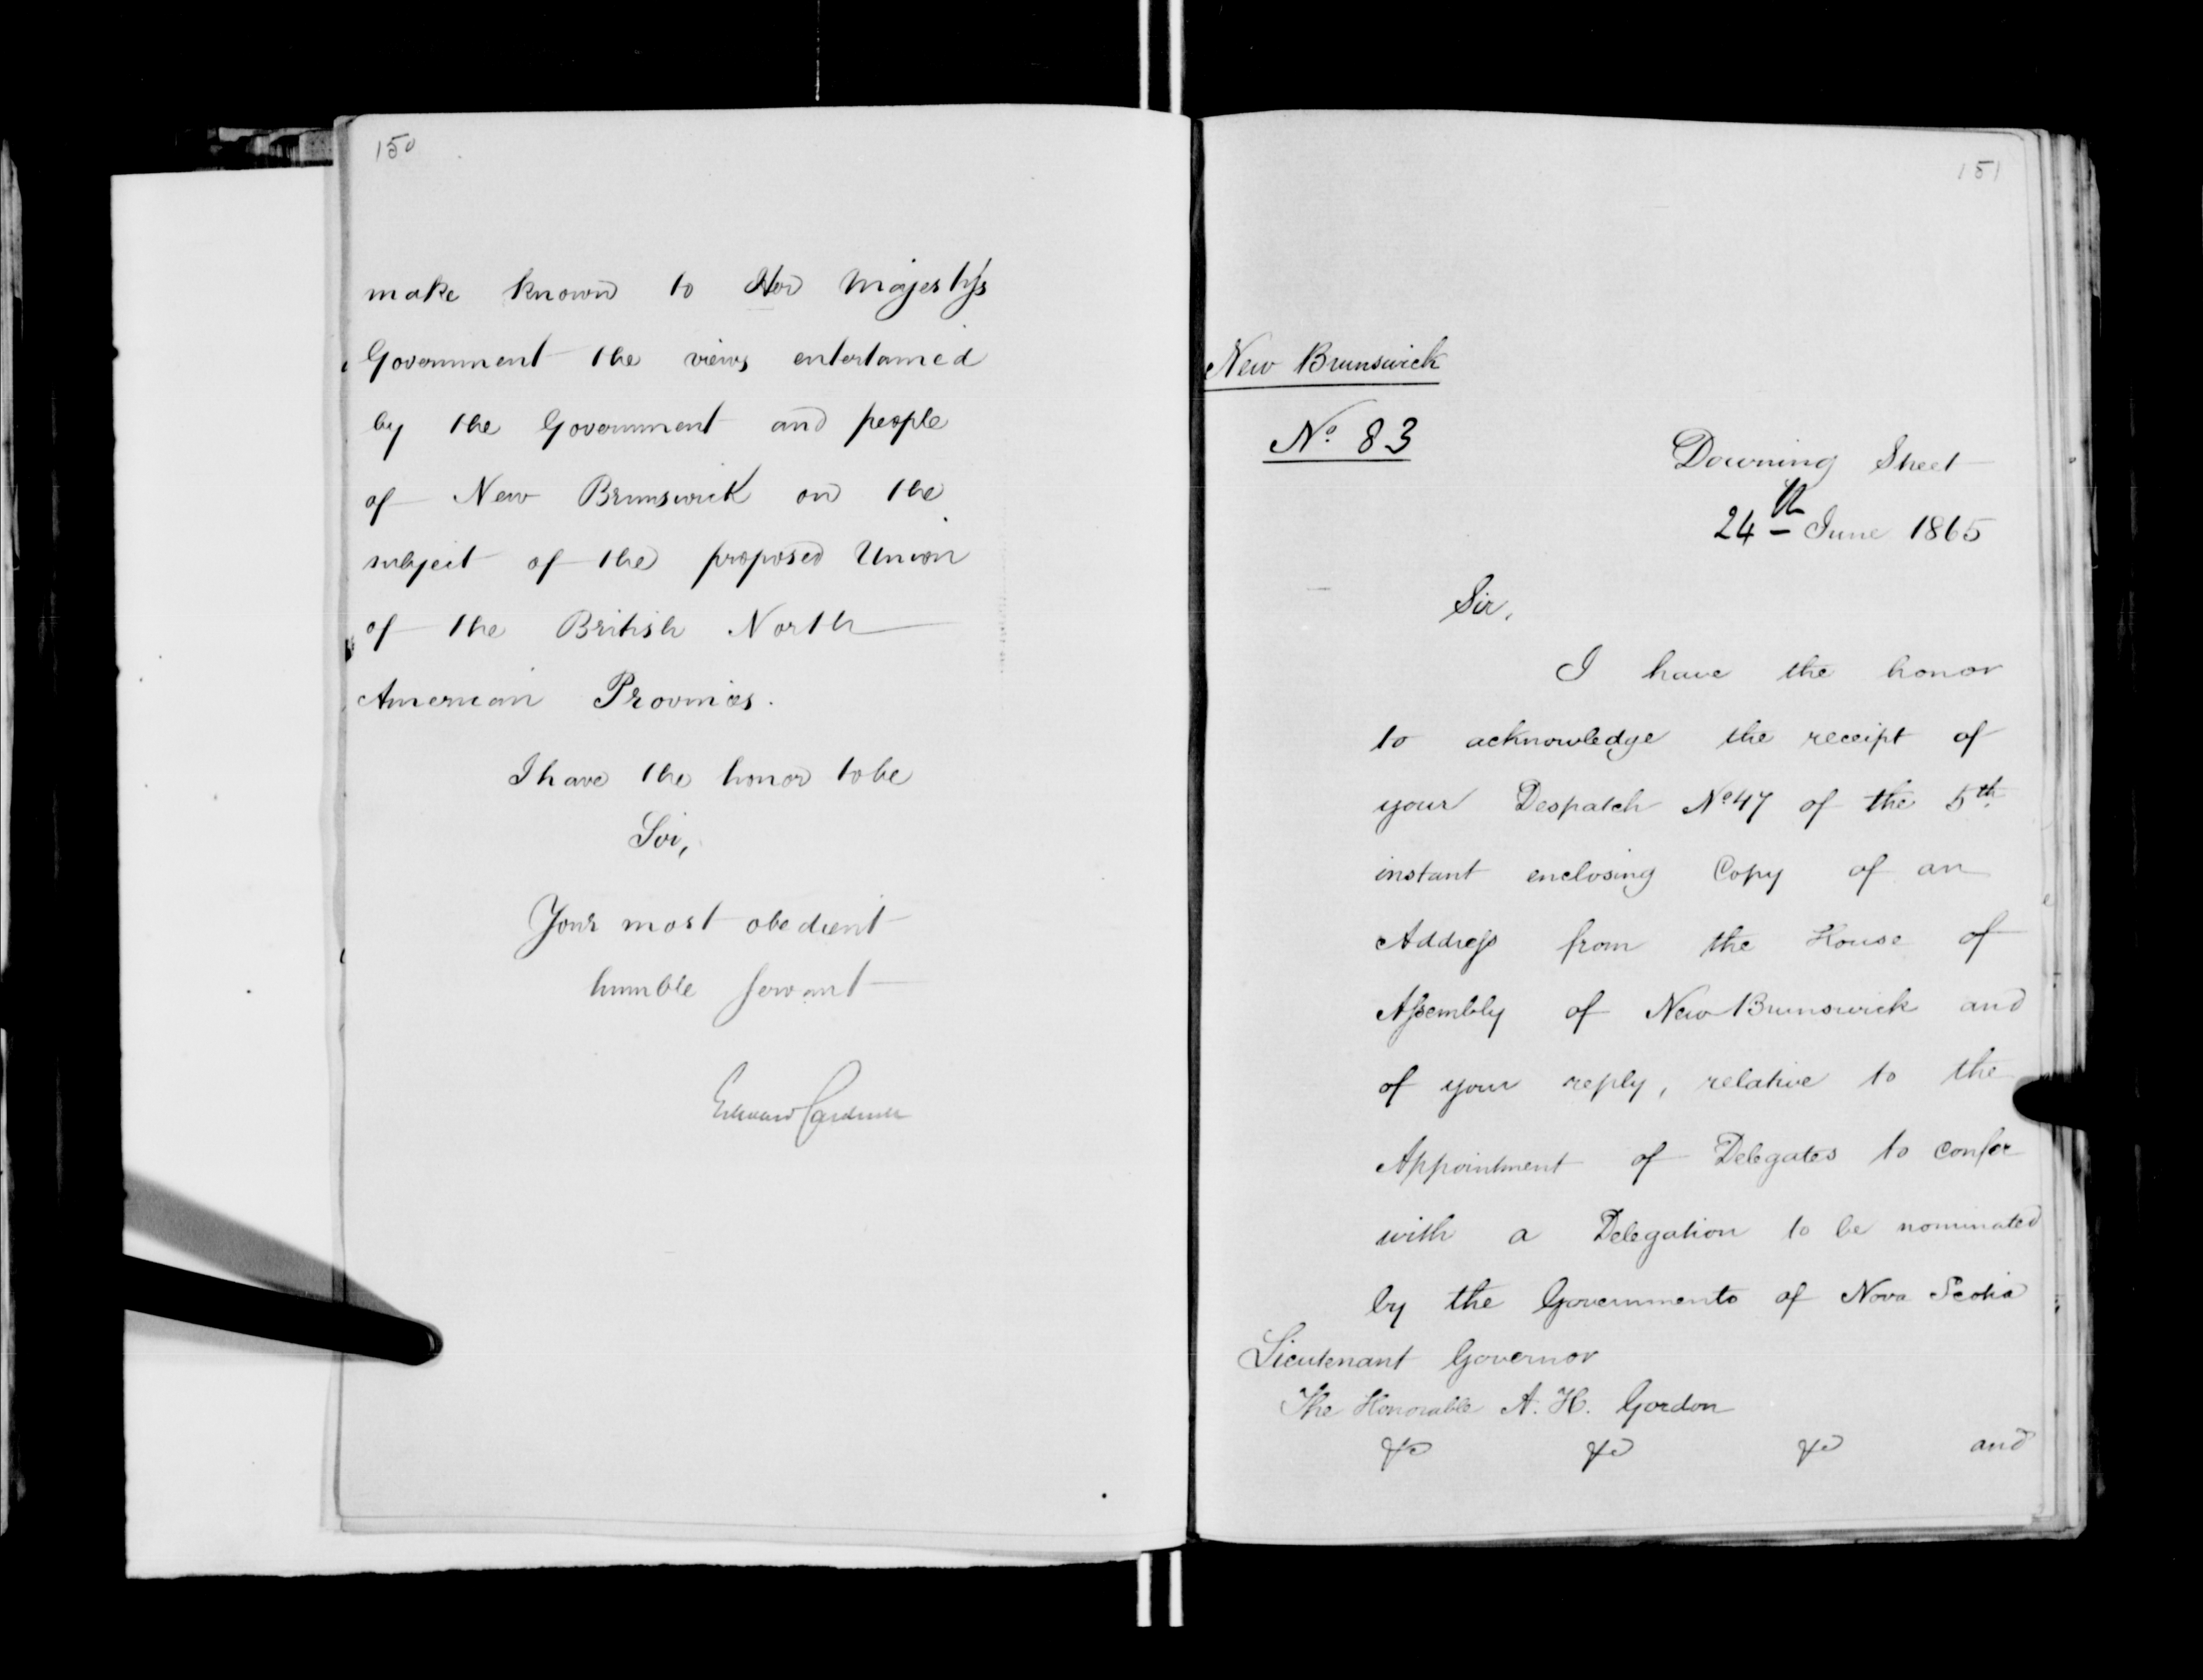 150
make known to Her Majesty's
Government the views entertained
by the Government and people
of New Brunswick on the
subject of the proposed Union
of the British North
American Provinces.
I have the honor to be
Sir,
Your most obedient
humble Servant
Edward Cardwell
151
New Brunswick
No. 83
Downing Street
24th June 1865
Sir,
I have the honor
to acknowledge the receipt of
your Despatch No. 47 of the 5th
instant enclosing Copy of an
Address from the House of
Assembly of New Brunswick and
of your reply, relative to the
Appointment of Delegates to confer
with a Delegation to be nominated
by the Governments of Nova Scotia
Lieutenant Governor
The Honorable A. H. Gordon
&c &c &c and